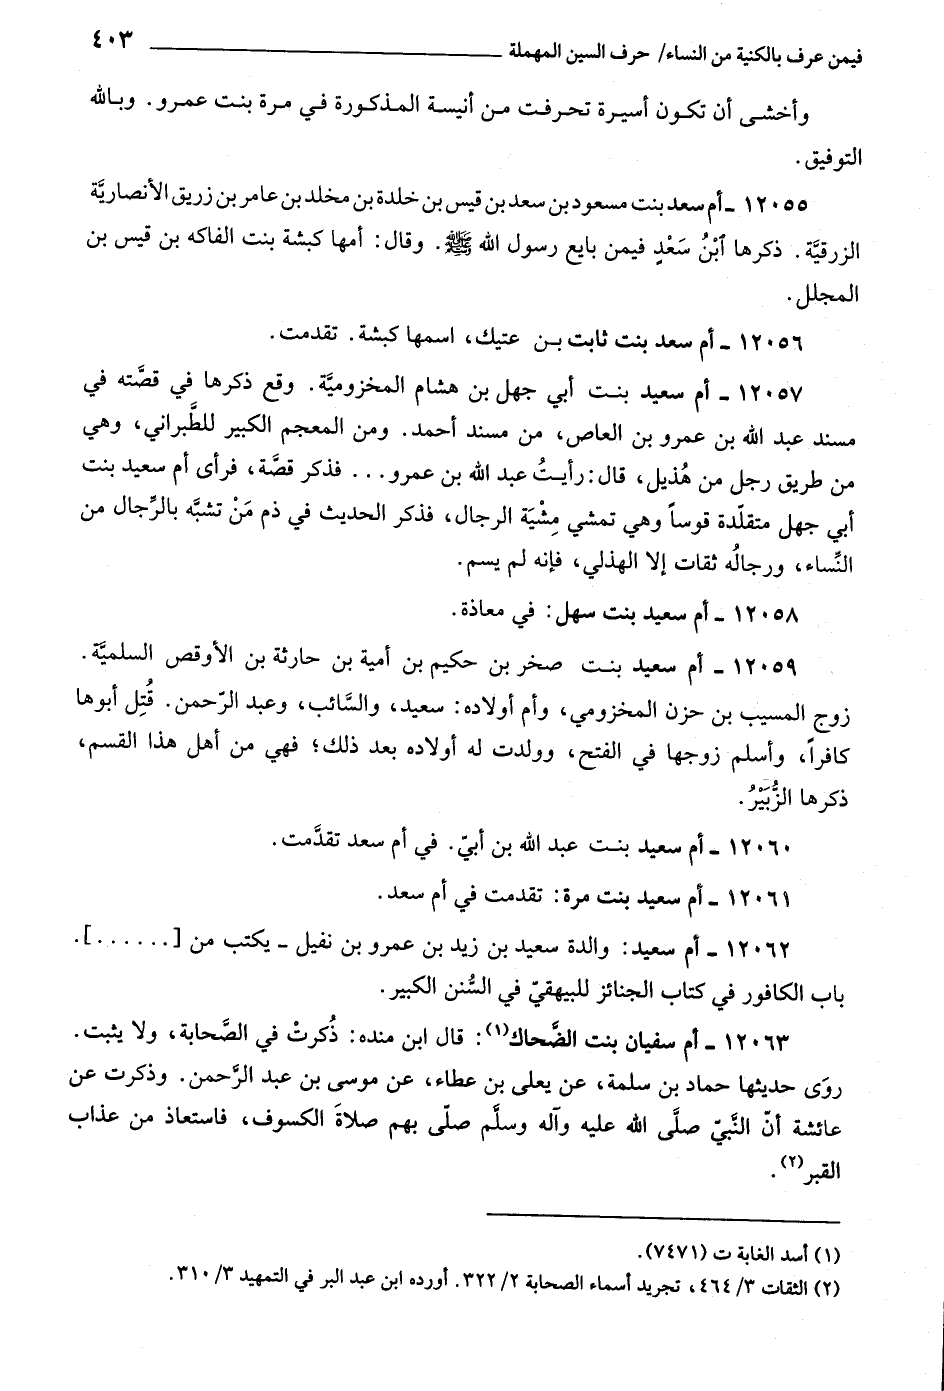 فيمن عرف بالكنية من النساء/ حرف السين المهملة ٤٠٣
وأخشى أن تكون أسيرة تحرفت من أنيسة المذكورة في مرة بنت عمرو. وبالله
التوفيق.
١٢٠٥٥ - أم سعد بنت مسعود بن سعد بن قيس بن خلدة بن مخلد بن عامر بن زريق الأنصاريَّة
الزرقيَّة. ذكرها ٱبْنُ سَعْدٍ فيمن بايع رسول الله ﷺ. وقال: أمها كبشة بنت الفاكه بن قيس بن
المجلل.
١٢٠٥٦ - أم سعد بنت ثابت بن عتيك، اسمها كبشة. تقدمت.
١٢٠٥٧ - أم سعيد بنت أبي جهل بن هشام المخزوميَّة. وقع ذكرها في قصَّته في
مسند عبد الله بن عمرو بن العاص، من مسند أحمد. ومن المعجم الكبير للطَّبراني، وهي
من طريق رجل من هُذيل، قال: رأيتُ عبد الله بن عمرو... فذكر قصَّة، فرأى أم سعيد بنت
أبي جهل متقلّدة قوساً وهي تمشي مِشْيَة الرجال، فذكر الحديث في ذم مَنْ تشبَّه بالرِّجال من
النِّساء، ورجالُه ثقات إلا الهذلي، فإنه لم يسم.
١٢٠٥٨ - أم سعيد بنت سهل: في معاذة.
١٢٠٥٩ - أم سعيد بنت صخر بن حكيم بن أمية بن حارثة بن الأوقص السلميَّة.
زوج المسيب بن حزن المخزومي، وأم أولاده: سعيد، والسَّائب، وعبد الرّحمن. قُتِل أبوها
كافراً، وأسلم زوجها في الفتح، وولدت له أولاده بعد ذلك؛ فهي من أهل هذا القسم،
ذكرها الزُّبَيْرُ.
١٢٠٦٠ - أم سعيد بنت عبد الله بن أبيّ. في أم سعد تقدَّمت.
١٢٠٦١ - أم سعيد بنت مرة: تقدمت في أم سعد.
١٢٠٦٢ - أم سعيد: والدة سعيد بن زيد بن عمرو بن نفيل - يكتب من [......].
باب الكافور في كتاب الجنائز للبيهقيّ في السُّنن الكبير.
١٢٠٦٣ - أم سفيان بنت الضَّحاك(١): قال ابن منده: ذُكرتْ في الصَّحابة، ولا يثبت.
روَى حديثها حماد بن سلمة، عن يعلى بن عطاء، عن موسى بن عبد الرَّحمن. وذكرت عن
عائشة أنّ النَّبيّ صلَّى الله عليه وآله وسلَّم صلّى بهم صلاةَ الكسوف، فاستعاذ من عذاب
القبر(٢).
(١) أسد الغابة ت (٧٤٧١).
(٢) الثقات ٣/ ٤٦٤، تجريد أسماء الصحابة ٢/ ٣٢٢. أورده ابن عبد البر في التمهيد ٣/ ٣١٠.